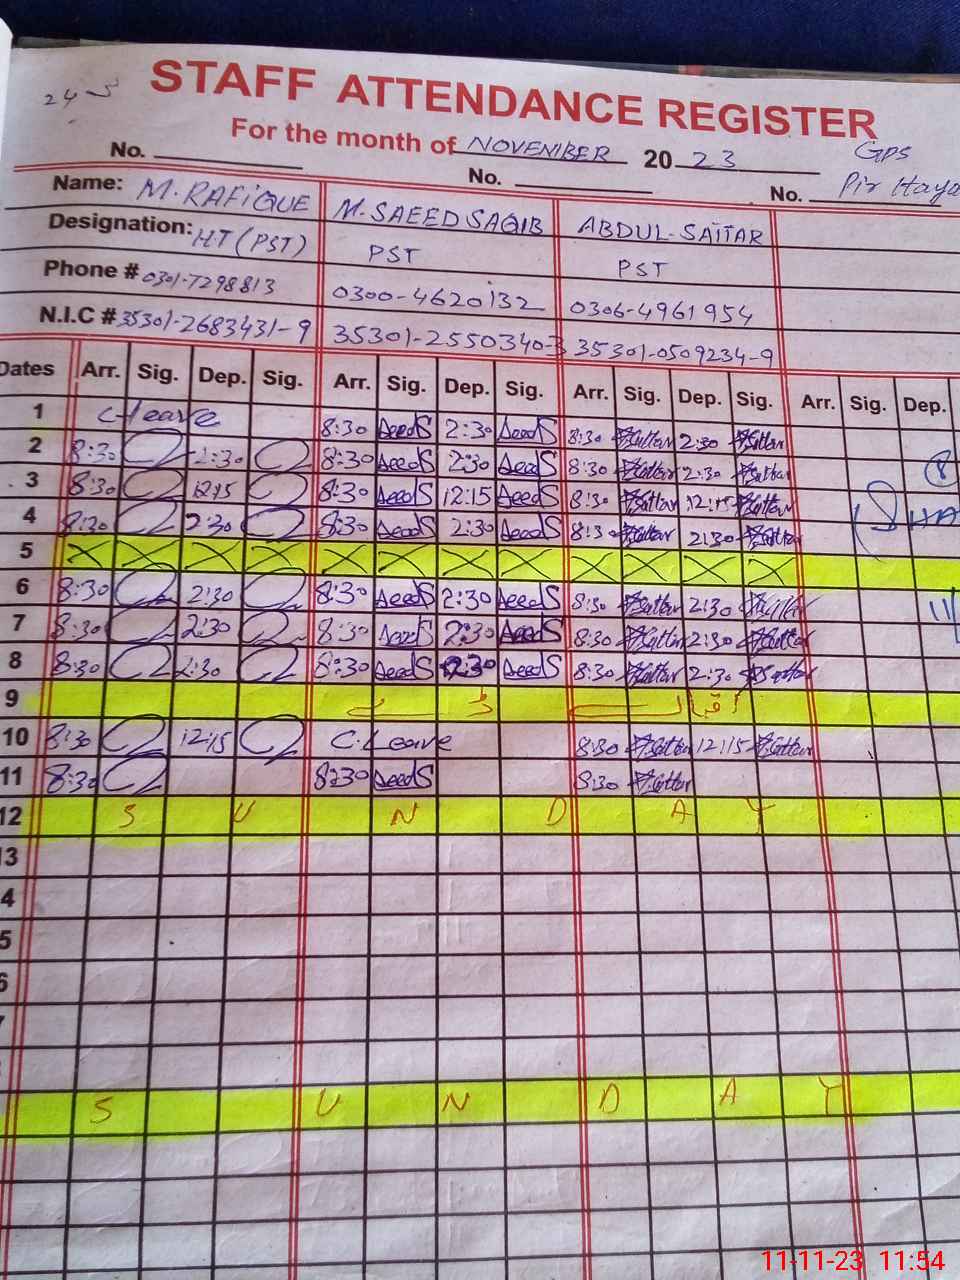 STAFF ATTENDANCE REGISTER
For the month of NOVEMBER 2023
GPS
No. No. No. Pir Haya
Name: M.RAFIQUE M.SAEED SAQIB ABDUL-SATTAR
Designation: HT (PST) PST PST
Phone # 0301-7298813 0300-4620132 0306-4961954
N.I.C # 35301-2683431-9 35301-2550340-3 35301-0509234-9
Dates Arr. Sig. Dep. Sig. Arr. Sig. Dep. Sig. Arr. Sig. Dep. Sig. Arr. Sig. Dep.
1 C-leave 8:30 SaeedS 2:30 SaeedS 8:30 A.Sattar 2:30 A.Sattar
2 8:30 2:30 8:30 SaeedS 2:30 SaeedS 8:30 A.Sattar 2:30 A.Sattar
3 8:30 12:15 8:30 SaeedS 12:15 SaeedS 8:30 A.Sattar 12:15 A.Sattar
4 8:30 2:30 8:30 SaeedS 2:30 SaeedS 8:30 A.Sattar 2:30 A.Sattar
5 X X X X X X X X X X X X
6 8:30 2:30 8:30 SaeedS 2:30 SaeedS 8:30 A.Sattar 2:30 A.Sattar
7 8:30 2:30 8:30 SaeedS 2:30 SaeedS 8:30 A.Sattar 2:30 A.Sattar
8 8:30 2:30 8:30 SaeedS 2:30 SaeedS 8:30 A.Sattar 2:30 A.Sattar
9
10 8:30 12:15 C.Leave 8:30 A.Sattar 12:15 A.Sattar
11 8:30 8:30 SaeedS 8:30 A.Sattar
12 S U N D A Y
13
4
5
6
7
S U N D A Y
11-11-23 11:54